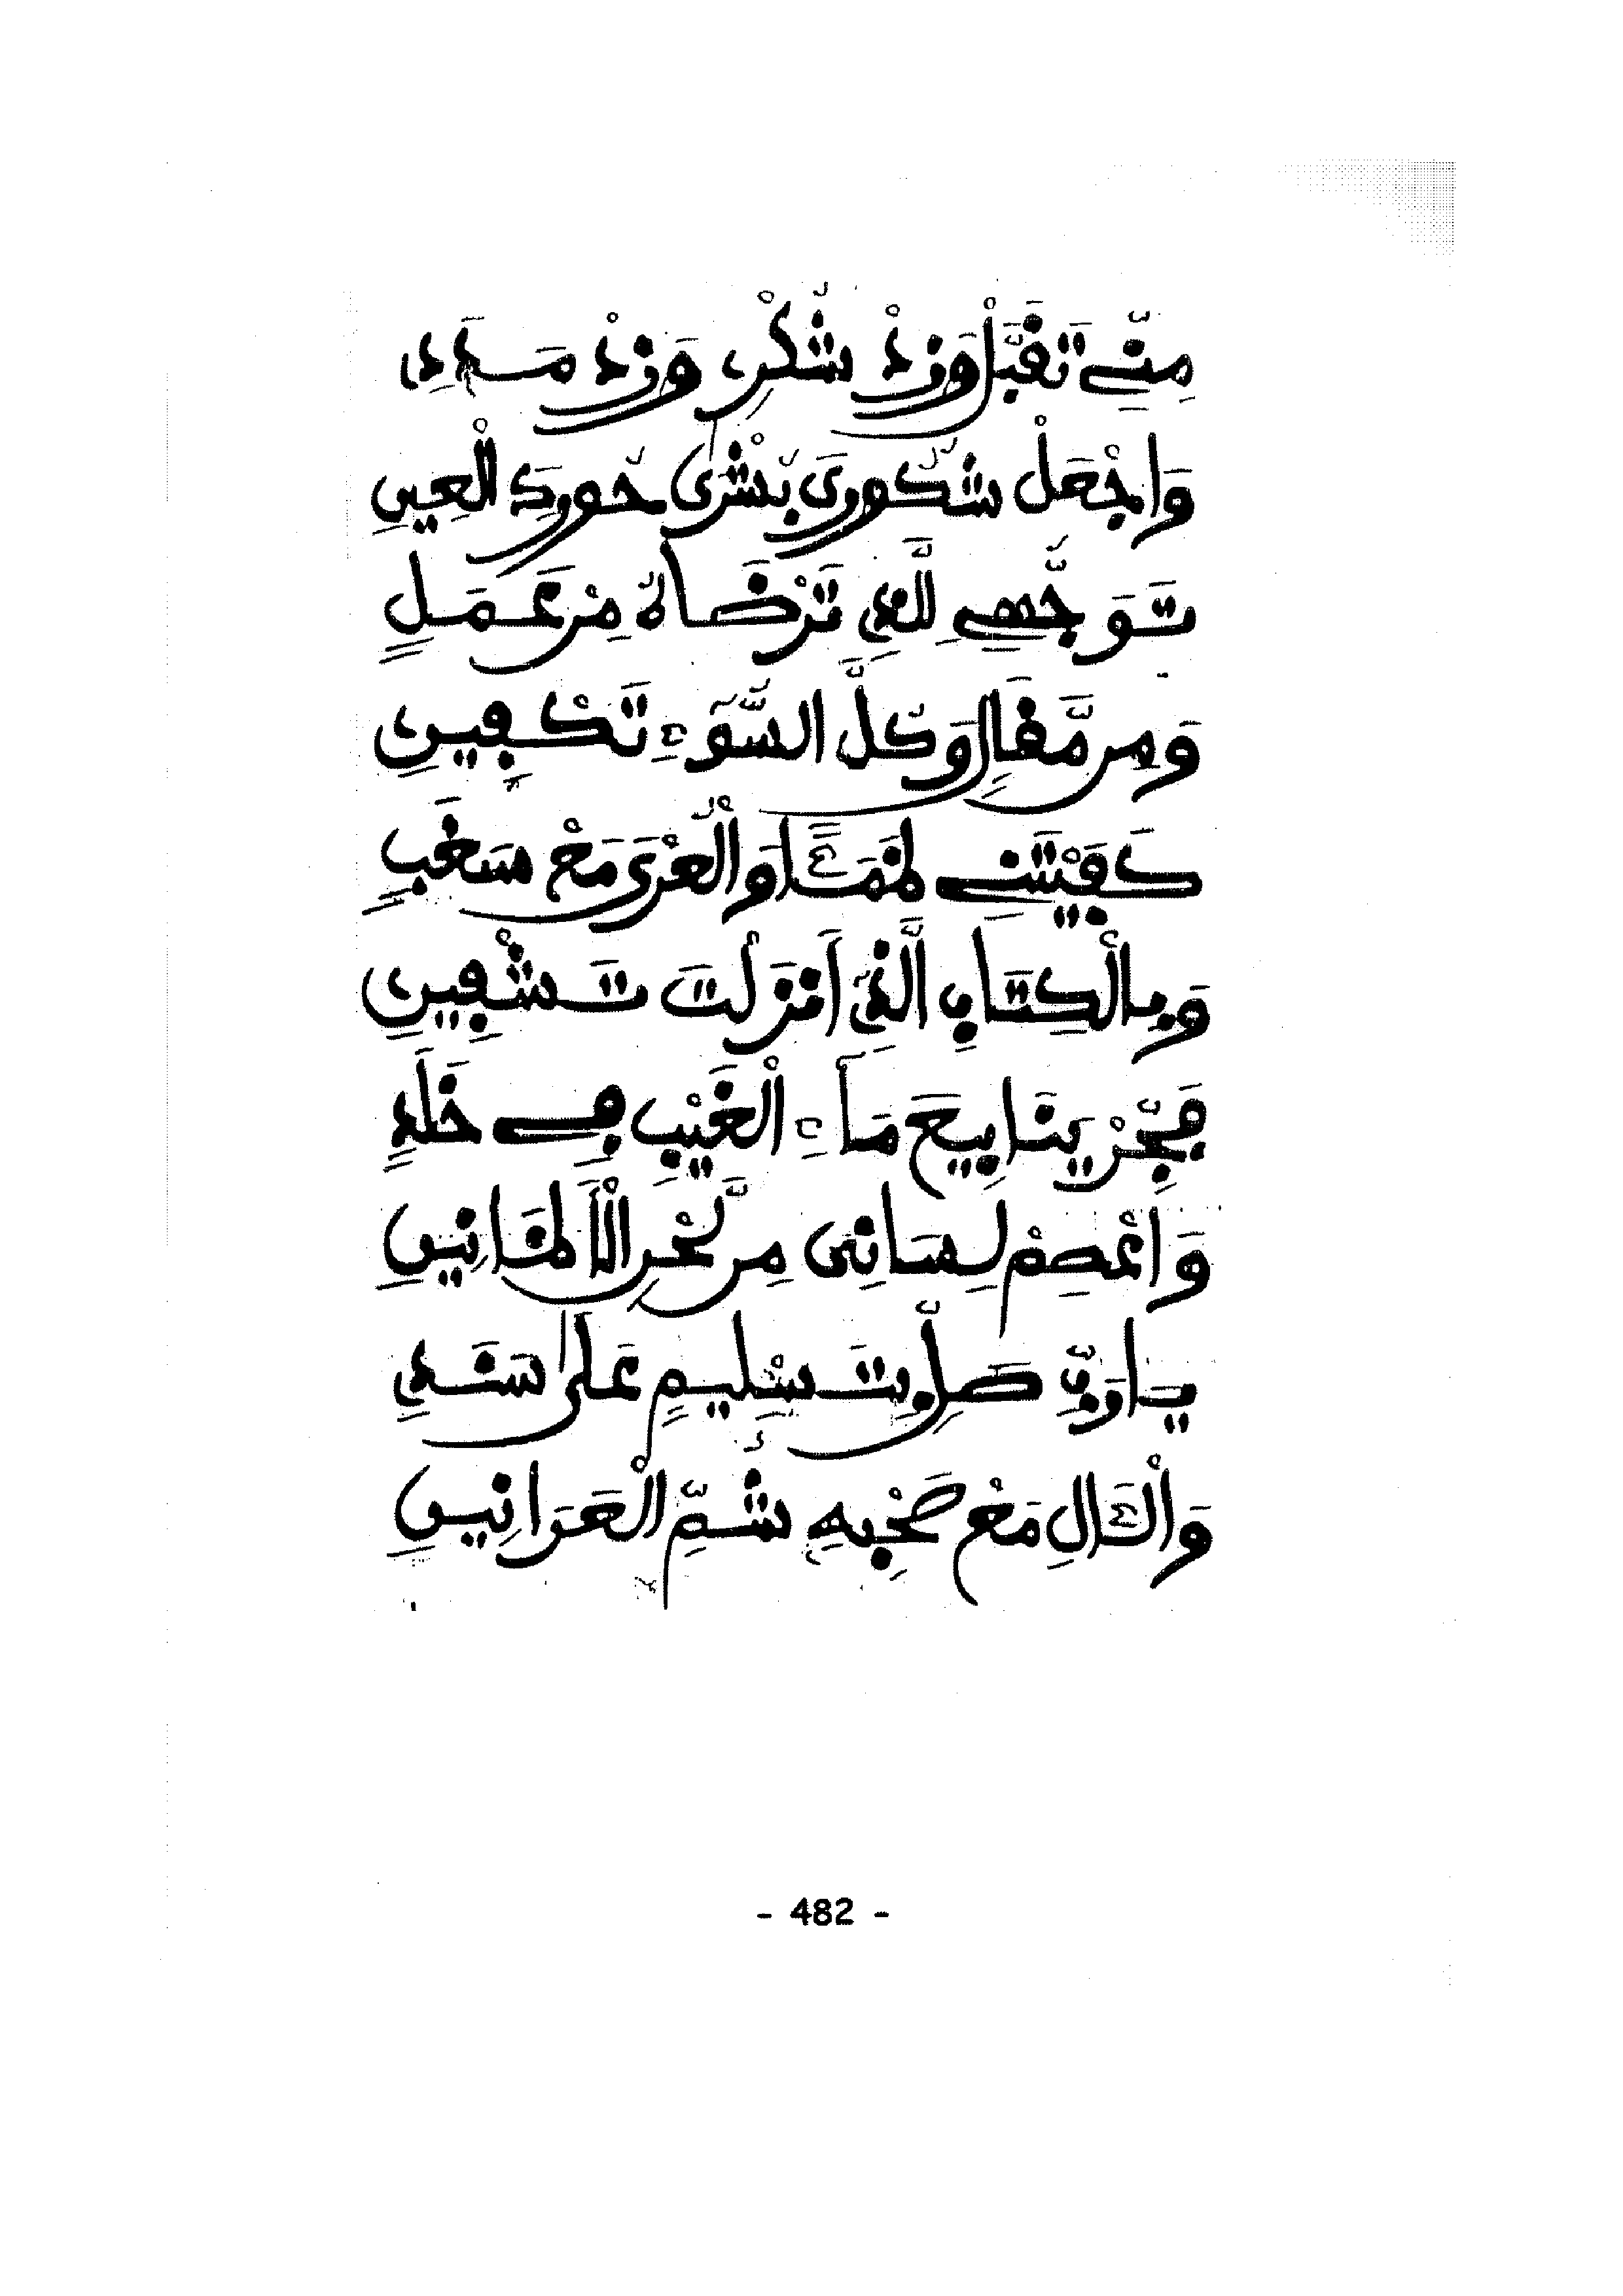 مِنِّي تَقَبَّلْ وَزِدْ شُكْرِي وَزِدْ مَدَدِي
وَاجْعَلْ شُكُورِيَ بُشْرَى حُورِكَ الْعِينِ
تَوَجُّهِي لِلَّذِي تَرْضَاهُ مِنْ عَمَلٍ
وَمِن مَّقَالٍ وَكُلَّ السُّوٓءِ تَكْفِينِي
كَفَيْتَنِي ظَمَـًٔا وَالْعُرْيَ مَعْ سَغَبٍ
وَبِالْكِتَابِ الَّذِي أَنزَلْتَ تَشْفِينِي
فَجِّرْ يَنَابِيعَ مَآءِ الْغَيْبِ فِي خَلَدِي
وَاعْصِمْ لِسَانِيَ مِن لَّحْنِ الْأَظَانِينِ
يَا رَبِّ صَلِّ بِتَسْلِيمٍ عَلَى سَنَدِي
وَالْآلِ مَعْ صَحْبِهِ شُمِّ الْعَرَانِينِ
- 482 -